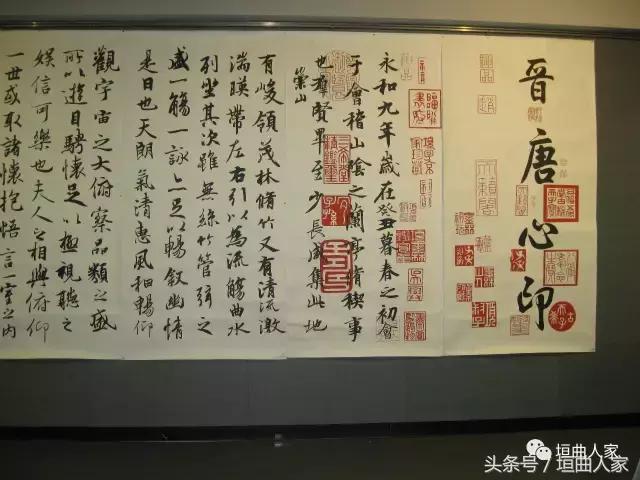 晉唐心印
永和九年歲在癸丑暮春之初會
于會稽山陰之蘭亭脩稧事
也羣賢畢至少長咸集此地
崇山
有峻領茂林脩竹又有清流激
湍暎帶左右引以為流觴曲水
列坐其次雖無絲竹管弦之
盛一觴一詠亦足以暢敘幽情
是日也天朗氣清惠風和暢仰
觀宇宙之大俯察品類之盛
所以遊目騁懷足以極視聽之
娛信可樂也夫人之相與俯仰
一世或取諸懷抱悟言一室之內
垣曲人家
头条号 / 垣曲人家